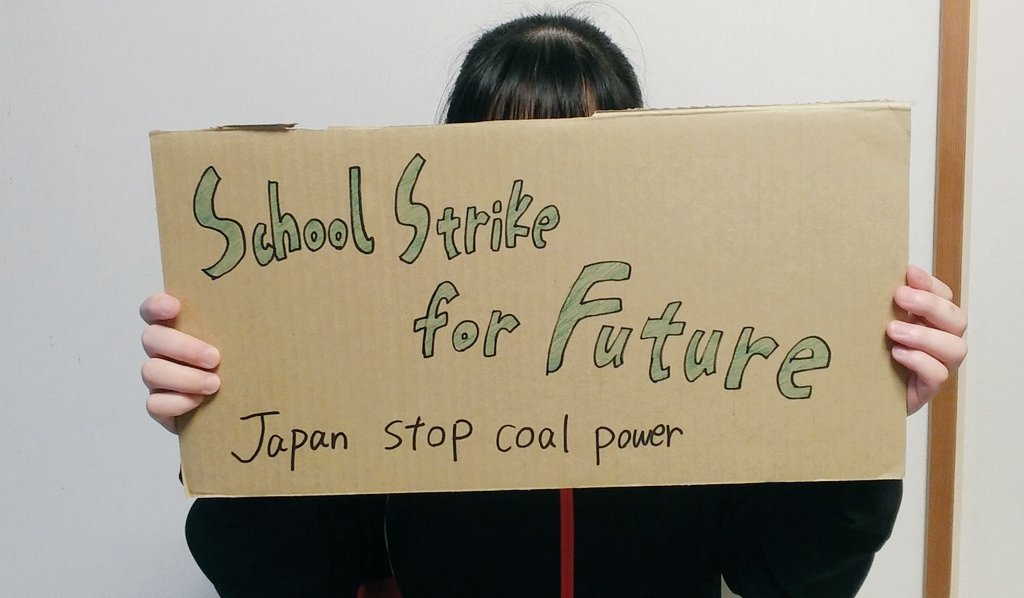 School Strike
for Future
Japan stop coal power